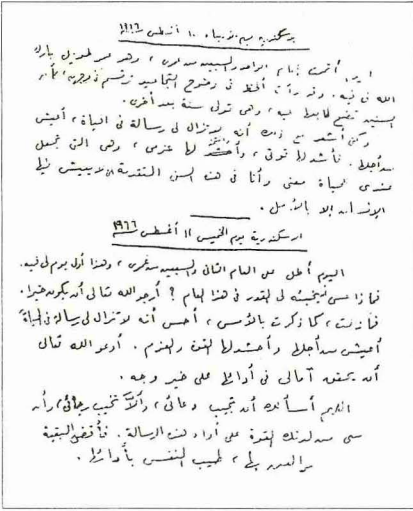 اسكندرية يوم الأربعاء ١٠ أغسطس ١٩٦٦
اليوم أتممت العام الواحد والسبعين من عمرى، وهو عمر طويل بارك
الله فى فيه. وقد بدأت ألحظ فى وضوح التجاعيد ترتسم فى
السنين تضع طابعها عليه، وهى تولى سنة بعد أخرى.
ولكنى أشعر مع ذلك أنه لا تزال لى رسالة فى الحياة، أعيش
من أجلها. فأشد لها قوتى، لها عزمى، وهى التى تجعل
عندى للحياة معنى وأنا فى هذه السن المتقدمة لا يعيش فيها
الإنسان إلا بالأمل.
اسكندرية يوم الخميس ١١ أغسطس ١٩٦٦
اليوم أطل على العام الثانى والسبعين من عمرى، وهذا أول يوم لى فيه.
فماذا عسى يخبئه لى القدر فى هذا العام؟ أرجو الله تعالى أن يكون خيرا.
فمازلت، كما ذكرت بالأمس، أحس أنه لا تزال لى رسالة فى الحياة
أعيش من أجلها وأحشد لها القوة والعزم. أدعو الله تعالى
أن يحقق آمالى فى أدائها على خير وجه.
اللهم أسألك أن تجيب دعائى، وألا تخيب رجائى، وأن
من لدنك القوة على أداء هذه الرسالة. فأقضى البقية
من العمر بها، طيب النفس بأدائها.